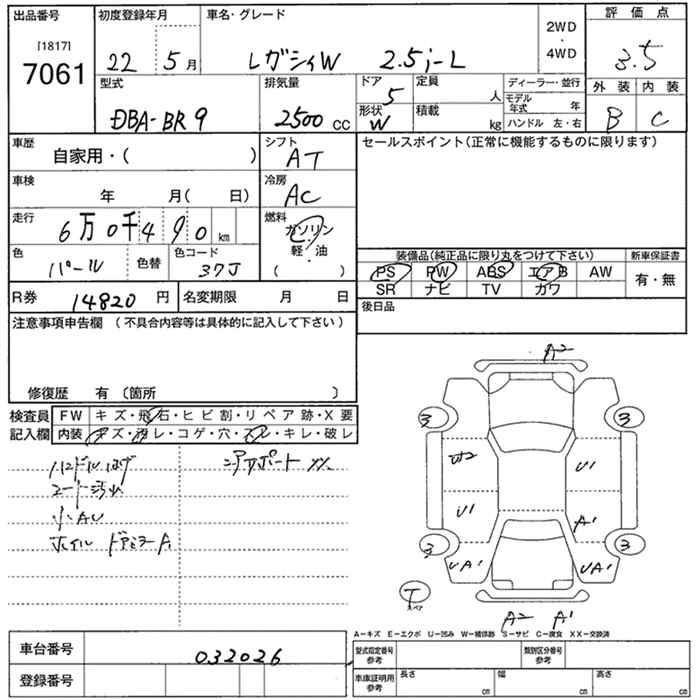 出品番号
初度登録年月
車名・グレード
2WD
・
4WD
評価点
[1817]
7061
22 5 月
レガシィW 2.5i-L
3.5
型式
排気量
ドア 5
定員 人
ディーラー・並行
外装 内装
DBA-BR9
2500 cc
形状 W
積載 kg
モデル年式 年
ハンドル 左・右
B C
車歴
自家用・( )
シフト
AT
セールスポイント(正常に機能するものに限ります)
車検
年 月( 日)
冷房
AC
走行
6万0千490 km
燃料
ガソリン
軽・油
( )
色
パール
色替
色コード
37J
装備品(純正品に限り丸をつけて下さい)
新車保証書
PS PW ABS エアB AW
SR ナビ TV カワ
有・無
R券 14820 円
名変期限 月 日
後日品
注意事項申告欄 (不具合内容等は具体的に記入して下さい)
修復歴 有(箇所 )
検査員
記入欄
FW キズ・飛石・ヒビ割・リペア跡・X要
内装 キズ・汚レ・コゲ・穴・スレ・キレ・破レ
ハンドルはげ
シート汚れ
小AU
ホイル ドアミラーA1
リアサポート XX
A2
3 3
U2 U1
U1 A1
3 3
UA1 UA1
T
スペア
A2 A1
A-キズ E-エクボ U-凹み W-補修跡 S-サビ C-腐食 XX-交換済
車台番号
032026
登録番号
型式指定番号
参考
類別区分番号
参考
車庫証明用
参考
長さ cm
幅 cm
高さ cm